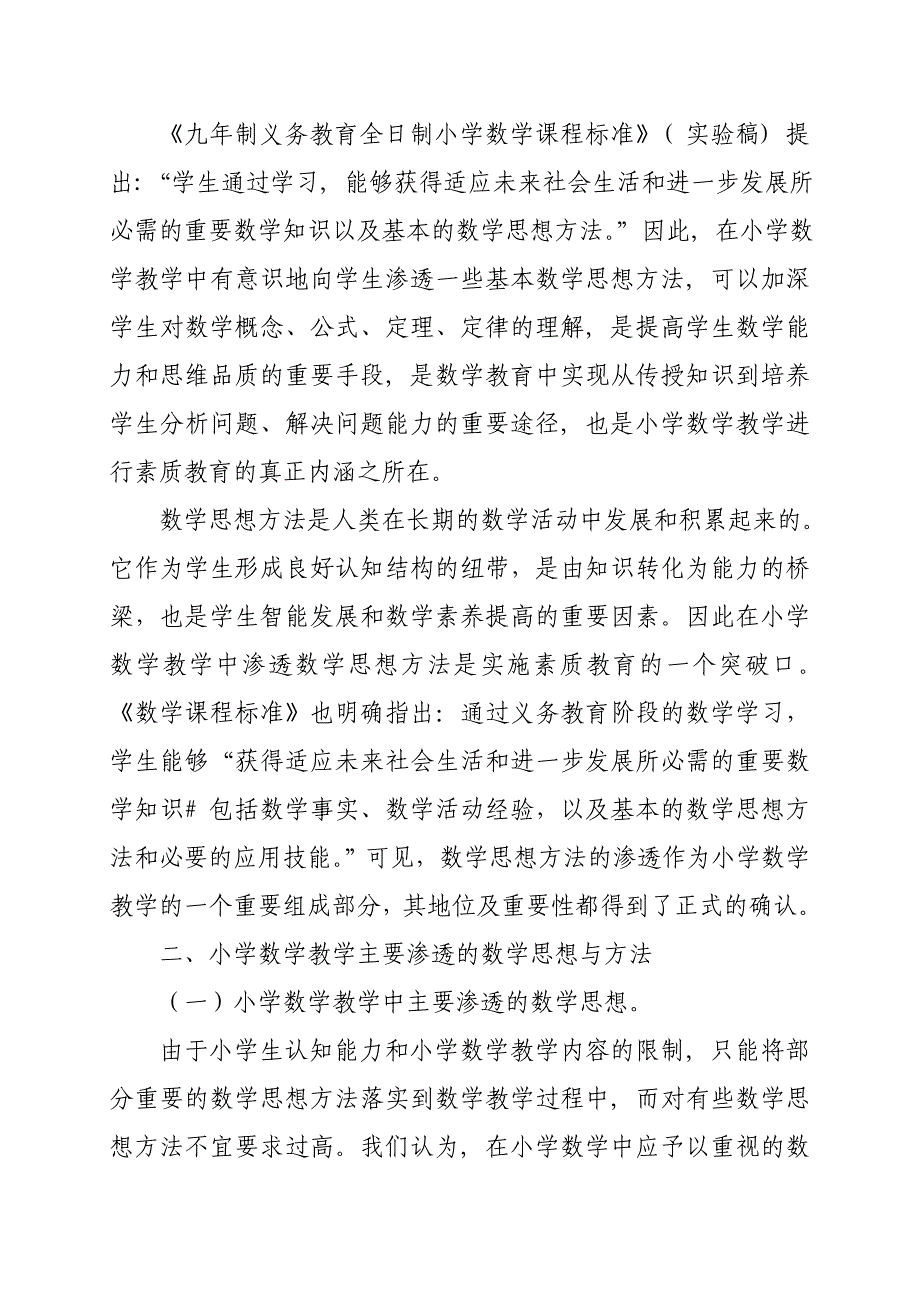 《九年制义务教育全日制小学数学课程标准》( 实验稿) 提
出：“学生通过学习, 能够获得适应未来社会生活和进一步发展所
必需的重要数学知识以及基本的数学思想方法。”因此, 在小学数
学教学中有意识地向学生渗透一些基本数学思想方法, 可以加深
学生对数学概念、公式、定理、定律的理解, 是提高学生数学能
力和思维品质的重要手段, 是数学教育中实现从传授知识到培养
学生分析问题、解决问题能力的重要途径, 也是小学数学教学进
行素质教育的真正内涵之所在。
数学思想方法是人类在长期的数学活动中发展和积累起来的。
它作为学生形成良好认知结构的纽带，是由知识转化为能力的桥
梁，也是学生智能发展和数学素养提高的重要因素。因此在小学
数学教学中渗透数学思想方法是实施素质教育的一个突破口。
《数学课程标准》也明确指出：通过义务教育阶段的数学学习，
学生能够“获得适应未来社会生活和进一步发展所必需的重要数
学知识# 包括数学事实、数学活动经验，以及基本的数学思想方
法和必要的应用技能。”可见，数学思想方法的渗透作为小学数学
教学的一个重要组成部分，其地位及重要性都得到了正式的确认。
二、小学数学教学主要渗透的数学思想与方法
（一）小学数学教学中主要渗透的数学思想。
由于小学生认知能力和小学数学教学内容的限制, 只能将部
分重要的数学思想方法落实到数学教学过程中, 而对有些数学思
想方法不宜要求过高。我们认为, 在小学数学中应予以重视的数